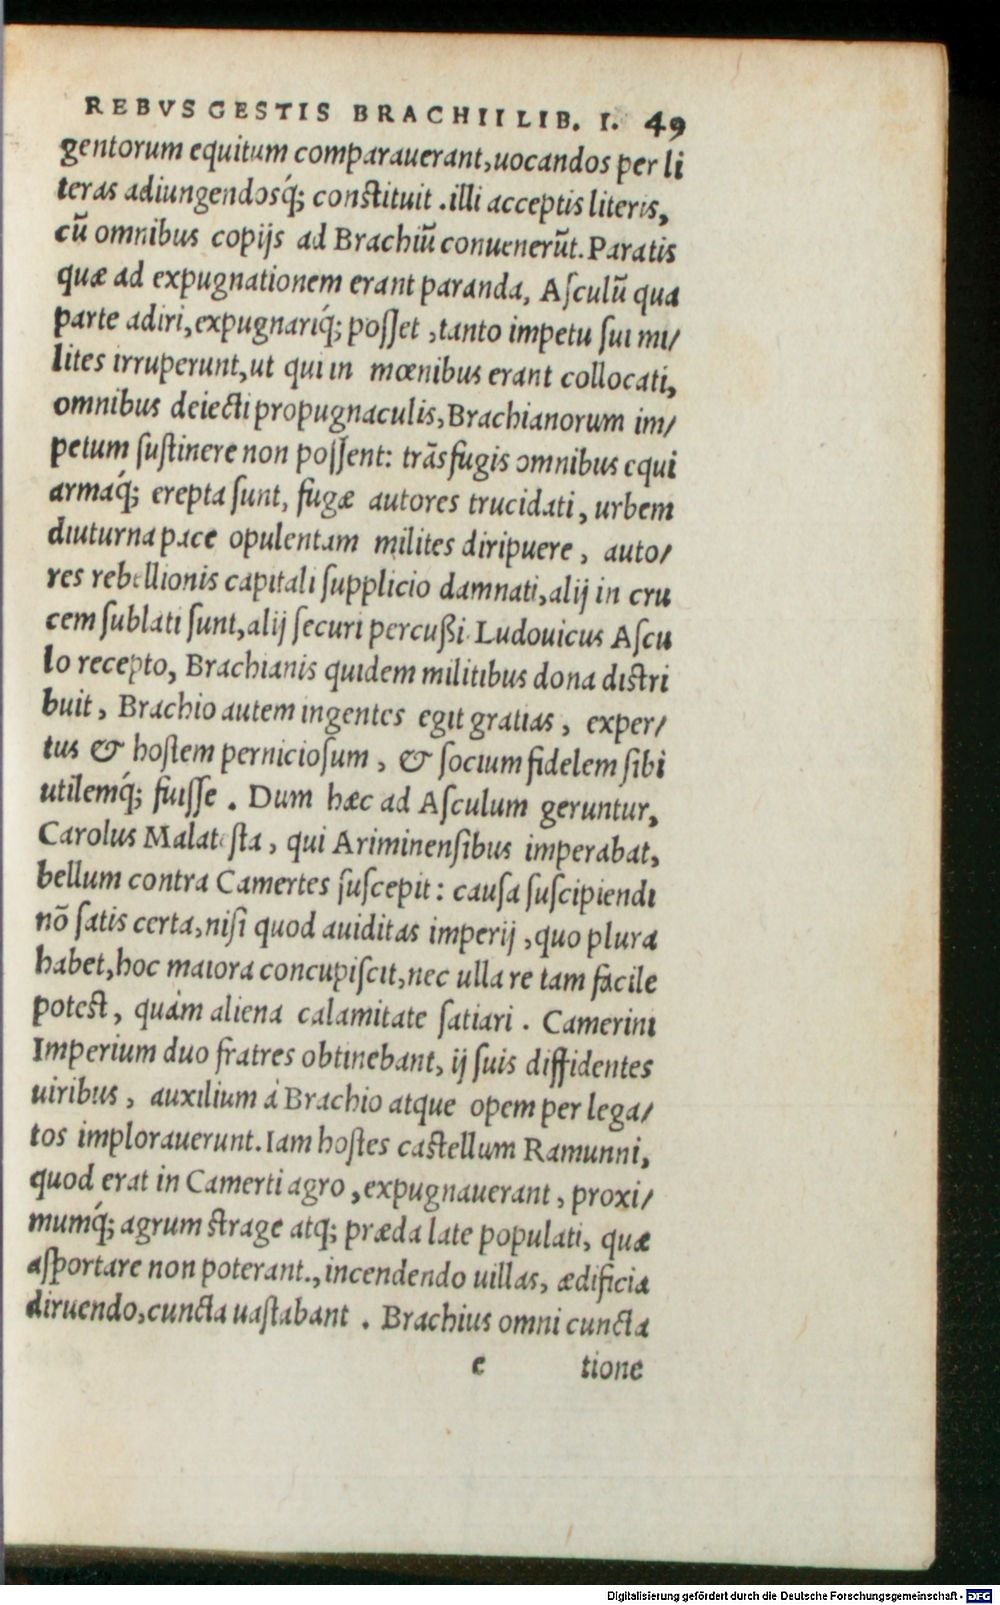 REBVS GESTIS BRACHII LIB. I. 49
gentorum equitum comparauerant,uocandos per li
teras adiungendosq́; constituit .illi acceptis literis,
cū omnibus copijs ad Brachiū conuenerūt. Paratis
quæ ad expugnationem erant paranda, Asculū qua
parte adiri,expugnariq́; posset ,tanto impetu sui mi/
lites irruperunt,ut qui in mœnibus erant collocati,
omnibus deiecti propugnaculis,Brachianorum im/
petum sustinere non possent: trãsfugis omnibus equi
armaq́; erepta sunt, fugæ autores trucidati, urbem
diuturna pace opulentam milites diripuere, auto/
res rebellionis capitali supplicio damnati,alij in cru
cem sublati sunt,alij securi percußi. Ludouicus Ascu
lo recepto, Brachianis quidem militibus dona distri
buit, Brachio autem ingentes egit gratias, exper/
tus & hostem perniciosum, & socium fidelem sibi
utilemq́; fuisse. Dum hæc ad Asculum geruntur,
Carolus Malatesta, qui Ariminensibus imperabat,
bellum contra Camertes suscepit: causa suscipiendi
nō satis certa,nisi quod auiditas imperij ,quo plura
habet,hoc maiora concupiscit,nec ulla re tam facile
potest, quàm aliena calamitate satiari. Camerini
Imperium duo fratres obtinebant, ij suis diffidentes
uiribus, auxilium à Brachio atque opem per lega/
tos implorauerunt. Iam hostes castellum Ramunni,
quod erat in Camerti agro ,expugnauerant, proxi/
mumq́; agrum strage atq; præda late populati, quæ
asportare non poterant.,incendendo uillas, ædificia
diruendo,cuncta uastabant . Brachius omni cuncta
e tione
Digitalisierung gefördert durch die Deutsche Forschungsgemeinschaft - DFG